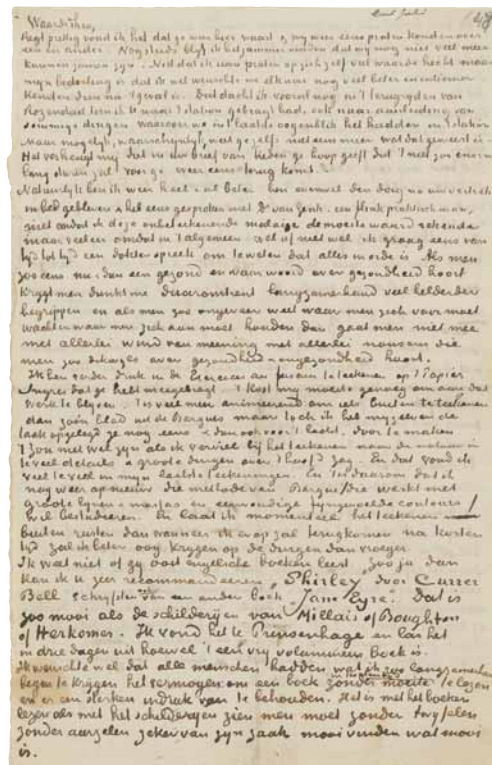 Waarde Theo,
Regt prettig vond ik het dat ge van hier waart & wij weer eens praten konden over
een en ander. Nog steeds blijf ik het jammer vinden dat wij nog niet veel meer
kunnen zamen zijn. Niet dat ik aan praten op zich zelf veel waarde hecht maar
mijn bedoeling is dat ik wel wenschte we elkaar nog veel beter en intiemer
kenden dan nu 't geval is. Dat dacht ik vooral nog in 't terugrijden van
Rozendaal toen ik U naar 't station gebragt had, ook naar aanleiding van
sommige dingen waarover we in 't laatste oogenblik het hadden aan 't station
Maar mogelijk, waarschijnlijk, weet ge zelf niet eens meer wat dat geweest is
Het verheugt mij dat in uw brief van heden ge hoop geeft dat 't niet zoo enorm
lang duren zal voor ge weer eens terug komt.
Natuurlijk ben ik weer heel & al beter. ben evenwel den dag na uw vertrek
in bed gebleven & heb eens gesproken met Dr van Genk. een flink praktisch man,
niet omdat ik deze onbeteekenende malaise de moeite waard rekende
maar veeleer omdat in 't algemeen wel of niet wel ik graag eens van
tijd tot tijd een dokter spreek om te weten dat alles in orde is. Als men
zoo eens nu & dan een gezond en waar woord over gezondheid hoort
krijgt men dunkt me dienaromtrent langzamerhand veel helderder
begrippen en als men zoo ongeveer weet waar men zich voor moet
wachten waar men zich aan moet houden dan gaat men niet mee
met allerlei wind van meening met allerlei nonsens die
men zoo dikwijls over gezondheid & ongezondheid hoort.
Ik ben verder druk in de Exercices au fusain te teekenen op 't papier
Ingres dat ge hebt meegebragt. 't kost mij moeite genoeg om aan dat
werk te blijven. 't is veel meer animeerend om iets buiten te teekenen
dan zoo'n blad uit de Bargues maar toch ik heb mijzelven de
taak opgelegd ze nog eens & dan ook voor 't laatst door te maken
't Zou niet wel zijn als ik verviel bij het teekenen naar de natuur in
te veel details & groote dingen over 't hoofd zag. En dat vond ik
veel te veel in mijn laatste teekeningen. En 't is daarom dat ik
nog weer opnieuw die methode van Bargue/die werkt met
groote lijnen & massas en eenvoudige fijngevoelde contours/
wil bestudeeren. En laat ik momenteel het teekenen
buiten rusten dan wanneer ik er op zal terugkomen na korten
tijd zal ik beter oog krijgen op de dingen dan vroeger.
Ik weet niet of gij ooit engelsche boeken leest. Zoo ja dan
kan ik U zeer recommandeeren, "Shirley" door Currer
Bell schrijfster van een ander boek "Jane Eyre". Dat is
zoo mooi als de schilderijen van Millais of Boughton
of Herkomer. Ik vond het te Prinsenhage en las het
in drie dagen uit hoewel 't een vrij volumineus boek is.
Ik wenschte wel dat alle menschen hadden wat ik zoo langzamerhand
begin te krijgen het vermogen om een boek zonder moeite te lezen
en er een sterken indruk van te behouden. Het is met het boeken
lezen als met het schilderijen zien men moet zonder twijfelen
zonder aarzelen zeker van zijn zaak mooi vinden wat mooi
is.